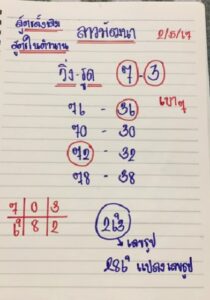 สูตรดั้งเดิม
สูตรในตำนาน
ลาวพัฒนา
2/5/67
วิ่ง-รูด 7-3
76 - 36
เบาๆ
70 - 30
72 - 32
78 - 38
7 0 3
6 8 2
263
เลขรูป
286 แปลงเลขรูป